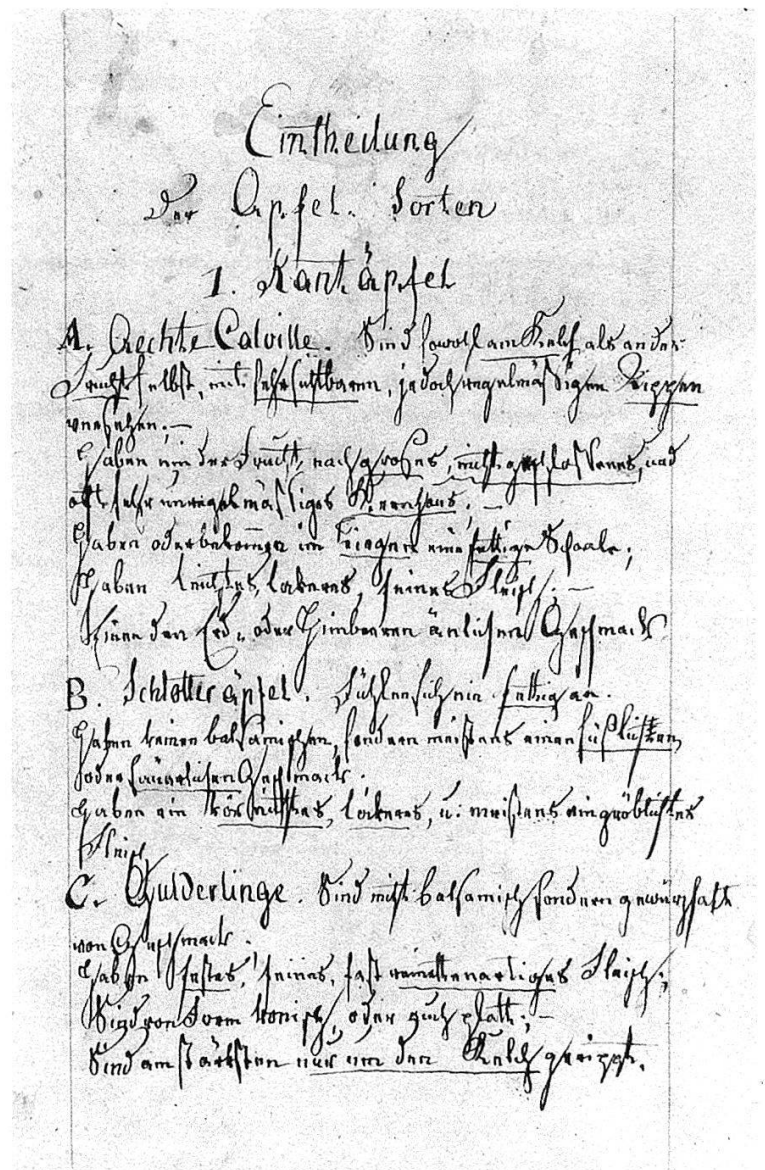 Eintheilung
der Apfel. Sorten
1. Kantäpfel
A. Aechte Calville. Sind sowohl am Kelch als an der
Frucht selbst, mit sehr sichtbaren, jedoch regelmäßigen Rippen
versehen; —
Haben in der Frucht, nach großes, nicht geschloßenes, und
oft sehr unregelmäßiges Kernhaus; —
Haben oder bekommen im Liegen eine fettige Schaale;
Haben leichtes, lockeres, feines Fleisch; —
den Erd- oder Himbeeren änlichen Geschmack
B. Schlotteräpfel. Fühlen sich nie fettig an.
Haben keinen balsamischen, sondern meistens einen süßlichten,
oder säuerlichen Geschmack.
Haben ein körnichtes, lockeres, u. meistens ein gröblichtes
Fleisch
C. Gulderlinge. Sind nicht balsamisch sondern gewürzhaft
von Geschmack.
Haben festes, feines, fast reinettenartiges Fleisch;
Sind von Form konisch, oder auch platt; —
Sind am stärksten nur um den Kelch gerippt.